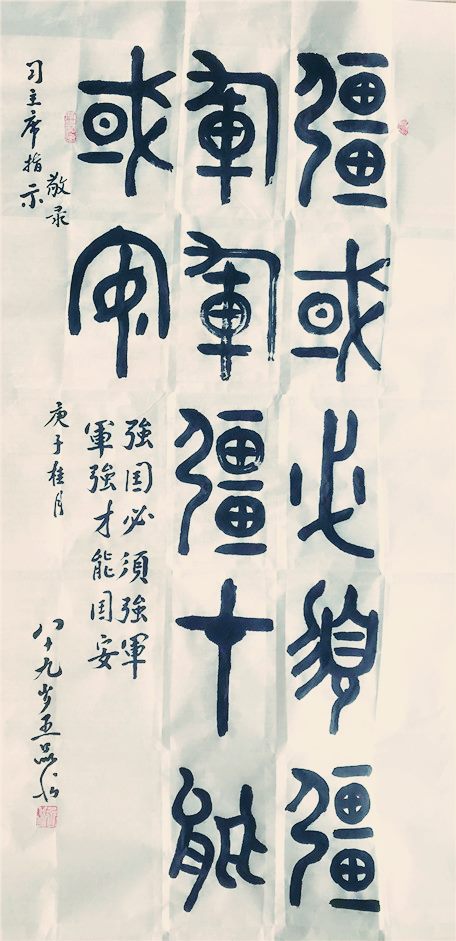 彊或必須彊
軍軍彊才能
或安
強囯必須強軍
軍強才能囯安
习主席指示
敬录
庚子桂月
八十九岁王品